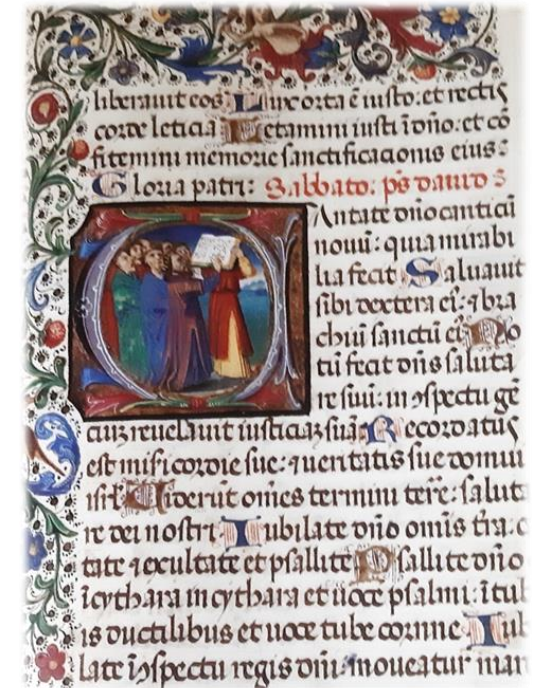 liberauit eos Lux orta ē iusto: et rectis
corde leticia Letamini iusti ī dño: et cō
fitemini memorie sanctificacionis eius:
Gloria patri: Sabbato: p̄s dauid
Cantate dño canticū
nouū: quia mirabi
lia fecit Saluauit
sibi dextera ei': ⁊ bra
chiū sanctū ei' No
tū fecit dñs saluta
re suū: in ↄspectu gē
ciuꝫ reuelauit iusticiaꝫ suā Recordatus
est misicordie sue: ⁊ ueritatis sue domui
isrl Uiderūt omēs termini terre: saluta
re dei nostri: Iubilate dño omīs tr̄a: c
tate ⁊ exultate et psallite Psallite dño
ī cythara in cythara et uoce psalmi: ī tub
is ductilibus et uoce tube cornne: Iub
late ī ↄspectu regis dñi: moueatur mar